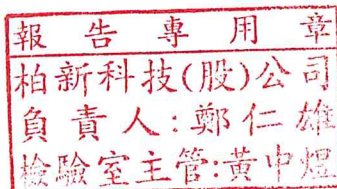 報告專用章
柏新科技(股)公司
負責人:鄭仁雄
檢驗室主管:黃中煜